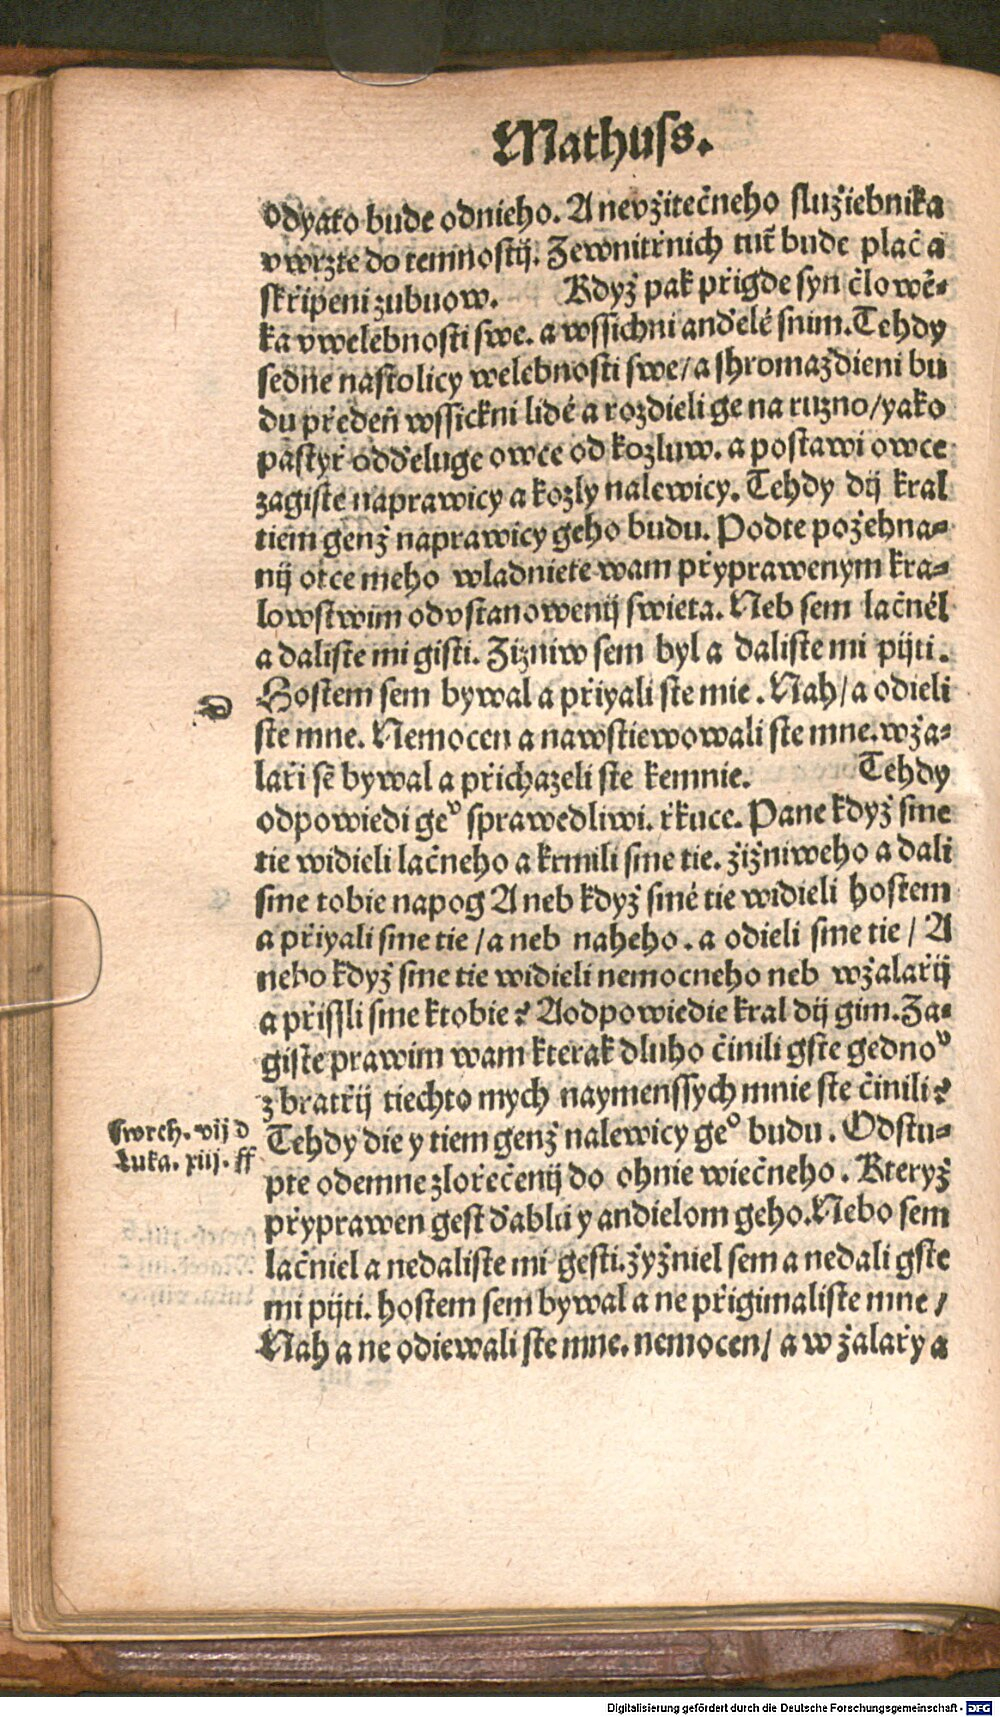 Mathuss.
odyato bude odnieho. A nevżitečneho służiebnika
vwrzte do temnostij. Zewnitřnich tuť bude plač a
skřipeni zubuow. Kdyż pak přigde syn člowě-
ka vwelebnosti swe. a wssichni anďelé snim. Tehdy
sedne nastolicy welebnosti swe/a shromażdieni bu
du předeň wssickni lidé a rozdieli ge na ruzno/yako
pastyř odďeluge owce od kozluw. a postawi owce
zagiste naprawicy a kozly nalewicy. Tehdy dij kral
tiem genż naprawicy geho budu. Podte pożehna-
nij otce meho wladniete wam přyprawenym kra-
lowstwim odvstanowenij swieta. Neb sem lačněl
a daliste mi gisti. Zizniw sem byl a daliste mi pijti.
D
Hostem sem bywal a přiyali ste mie. Nah/a odieli
ste mne. Nemocen a nawstiewowali ste mne. wża-
laři sē bywal a přichazeli ste kemnie. Tehdy
odpowiedi geᵛ sprawedliwi. řkuce. Pane kdyż sme
tie widieli lačneho a krmili sme tie. żiżniweho a dali
sme tobie napog A neb kdyż smé tie widieli hostem
a přiyali sme tie /a neb naheho. a odieli sme tie / A
nebo kdyż sme tie widieli nemocneho neb wżalařij
a přissli sme ktobie? Aodpowiedie kral dij gim. Za-
giste prawim wam kterak dluho činili gste gednoᵛ
z bratřij tiechto mych naymenssych mnie ste činili?
Swrch. vij d
Tehdy die y tiem genż nalewicy geᵒ budu. Odstu-
Luka. xiij. ff
pte odemne zlořečenij do ohnie wiečneho. Kteryż
přyprawen gest ďablu y andielom geho. Nebo sem
lačniel a nedaliste mi gesti. żyżniel sem a nedali gste
mi pijti. hostem sem bywal a ne přigimaliste mne /
Nah a ne odiewali ste mne. nemocen/ a w żalařy a
Digitalisierung gefördert durch die Deutsche Forschungsgemeinschaft - DFG